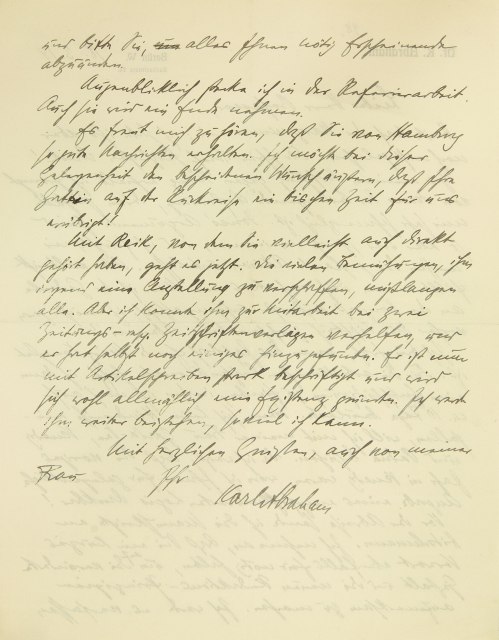 und bitte Sie, alles Ihnen nötig Erscheinende
abzuändern.
Augenblicklich stecke ich in der Referierarbeit.
Auch sie wird ein Ende nehmen.
Es freut mich zu hören, daß Sie von Hamburg
so gute Nachrichten erhalten. Ich möchte bei dieser
Gelegenheit den bescheidenen Wunsch äußern, daß Ihre
Gattin auf der Rückreise ein bischen Zeit für uns
erübrigt!
Mit Reik, von dem Sie vielleicht auch direkt
gehört haben, geht es jetzt. Die vielen Bemühungen, ihm
irgend eine Anstellung zu verschaffen, mißlangen
alle. Aber ich konnte ihm zur Mitarbeit bei zwei
Zeitungs- resp. Zeitschriftenverlagen verhelfen, und
er hat selbst noch einiges hinzugefunden. Er ist nun
mit Artikelschreiben stark beschäftigt und wird
sich wohl allmählich eine Existenz gründen. Ich werde
ihm weiter beistehen, soviel ich kann.
Mit herzlichen Grüßen, auch von meiner
Frau Ihr
Karl Abraham